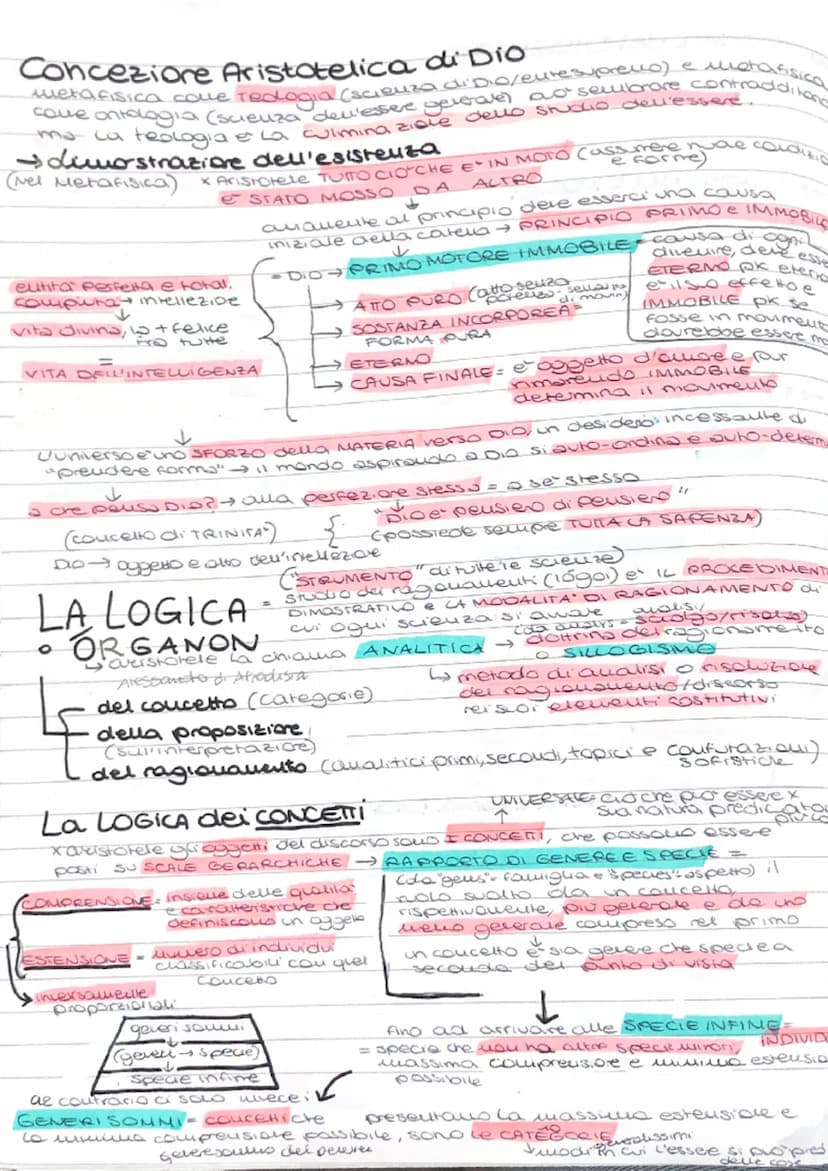 Concezione Aristotelica di Dio
metafisica come Teologia (scienza di Dio/ente supremo) e metafisica
come ontologia (scienza dell'essere generale) può sembrare contradditorio
ma la teologia è la culminazione dello studio dell'essere.
→ dimostrazione dell'esistenza
(nel Metafisica) x Aristotele TUTTO CIO' CHE E' IN MOTO (assumere nuove condizioni
e forme)
E' STATO MOSSO DA ALTRO
↓
ovviamente al principio deve esserci una causa
iniziale della catena → PRINCIPIO PRIMO e IMMOBILE
↓
= Dio → PRIMO MOTORE IMMOBILE = causa di ogni
divenire, deve essere
ETERNO pk eterno
è il suo effetto e
IMMOBILE pk se
fosse in movimento
dovrebbe essere mo
→ ATTO PURO (atto senza
potenza - senza
di movim)
→ SOSTANZA INCORPOREA =
FORMA PURA
→ ETERNO
→ CAUSA FINALE = è oggetto d'amore e pur
rimanendo IMMOBILE
determina il movimento
entità perfetta e total.
compiuta → intellezione
↓
vita divina, la + felice
tra tutte
=
VITA DELL'INTELLIGENZA
↓
L'universo è uno SFORZO della MATERIA verso DIO, un desiderio incessante di
"prendere forma" → il mondo aspirando a Dio si auto-ordina e auto-determ
↓
a che pensa Dio? → alla perfezione stessa = a se stesso
"Dio è pensiero di pensiero"
(concetto di TRINITA') { (possiede sempre TUTTA LA SAPIENZA)
Dio → oggetto e atto dell'intellezione
("STRUMENTO" di tutte le scienze)
LA LOGICA = studio dei ragionamenti (lógoi) e IL PROCEDIMENTO
DIMOSTRATIVO e LA MODALITA' DI RAGIONAMENTO di
cui ogni scienza si avvale
• ÓRGANON
↳ aristotele la chiama ANALITICA → (da analysis = sciolgo/risolvo)
dottrina del ragionamento
o SILLOGISMO
Alessandro di Afrodisia
↳ metodo di analisi o risoluzione
del ragionamento/discorso
nei suoi elementi costitutivi
del concetto (categorie)
della proposizione
(sull'interpretazione)
del ragionamento (analitici primi, secondi, topici e confutazioni)
sofistiche
La LOGICA dei CONCETTI
UNIVERSALE: ciò che può essere x
sua natura predicato
↑
x aristotele gli oggetti del discorso sono I CONCETTI, che possono essere
posti su SCALE GERARCHICHE → RAPPORTO DI GENERE E SPECIE =
(da "genus" = famiglia e "species" = aspetto) il
ruolo svolto da un concetto
rispettivamente, più generale e da uno
meno generale compreso nel primo
↓
un concetto è sia genere che specie a
seconda del punto di vista
COMPRENSIONE = insieme delle qualità
e caratteristiche che
definiscono un oggetto
ESTENSIONE = numero di individui
classificabili con quel
concetto
inversamente
proporzionali
generi sommi
↓
(generi → specie)
↓
specie infime
↓
fino ad arrivare alle SPECIE INFIME =
= specie che non ha altre specie minori, INDIVID
massima comprensione e minima estensio
possibile
al contrario ci sono invece i
GENERI SOMMI = CONCETTI che presentano la massima estensione e
la minima comprensione possibile, sono le 10 CATEGORIE generalissimi
↓ modi in cui l'essere si può pred
delle cose